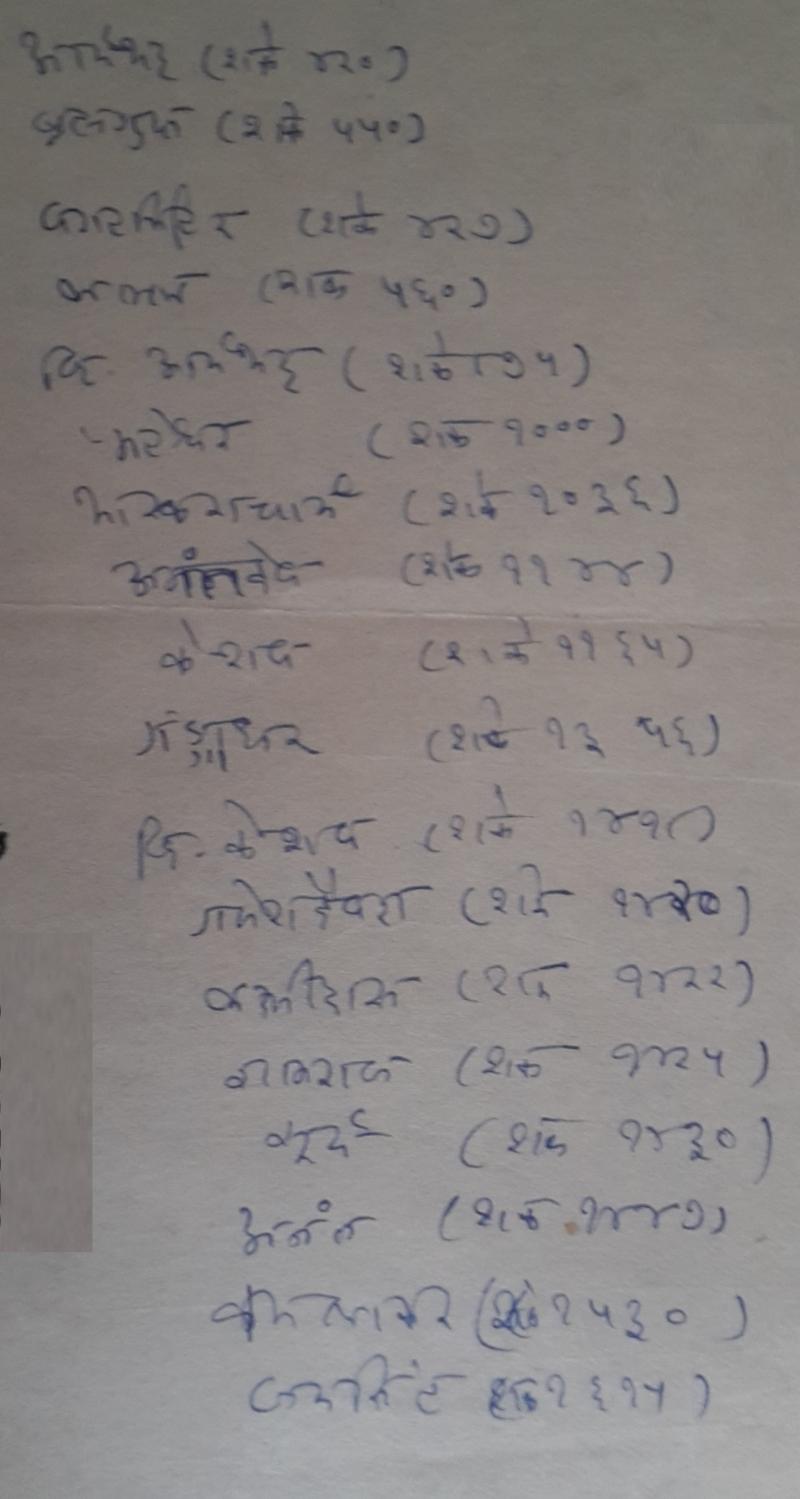 आर्यभट्ट (शके ४२०)
ब्रह्मगुप्त (शके ५५०)
वराहमिहिर (शके ४२७)
लल्लाचार्य (शके ५६०)
द्वि. आर्यभट्ट (शके ८७५)
(शके १०००)
भास्कराचार्य (शके १०३६)
अनंतदेव (शके ११४४)
केशव (शके ११६५)
गंगाधर (शके १३५६)
द्वि. केशव (शके १४१८)
गणेश दैवज्ञ (शके १४४०)
लक्ष्मीदास (शके १४२२)
ज्ञानराज (शके १४२५)
सूर्य (शके १४३०)
अनंत (शके १४४७)
कमलाकर (शके १५३०)
जयसिंह शके १६१५)